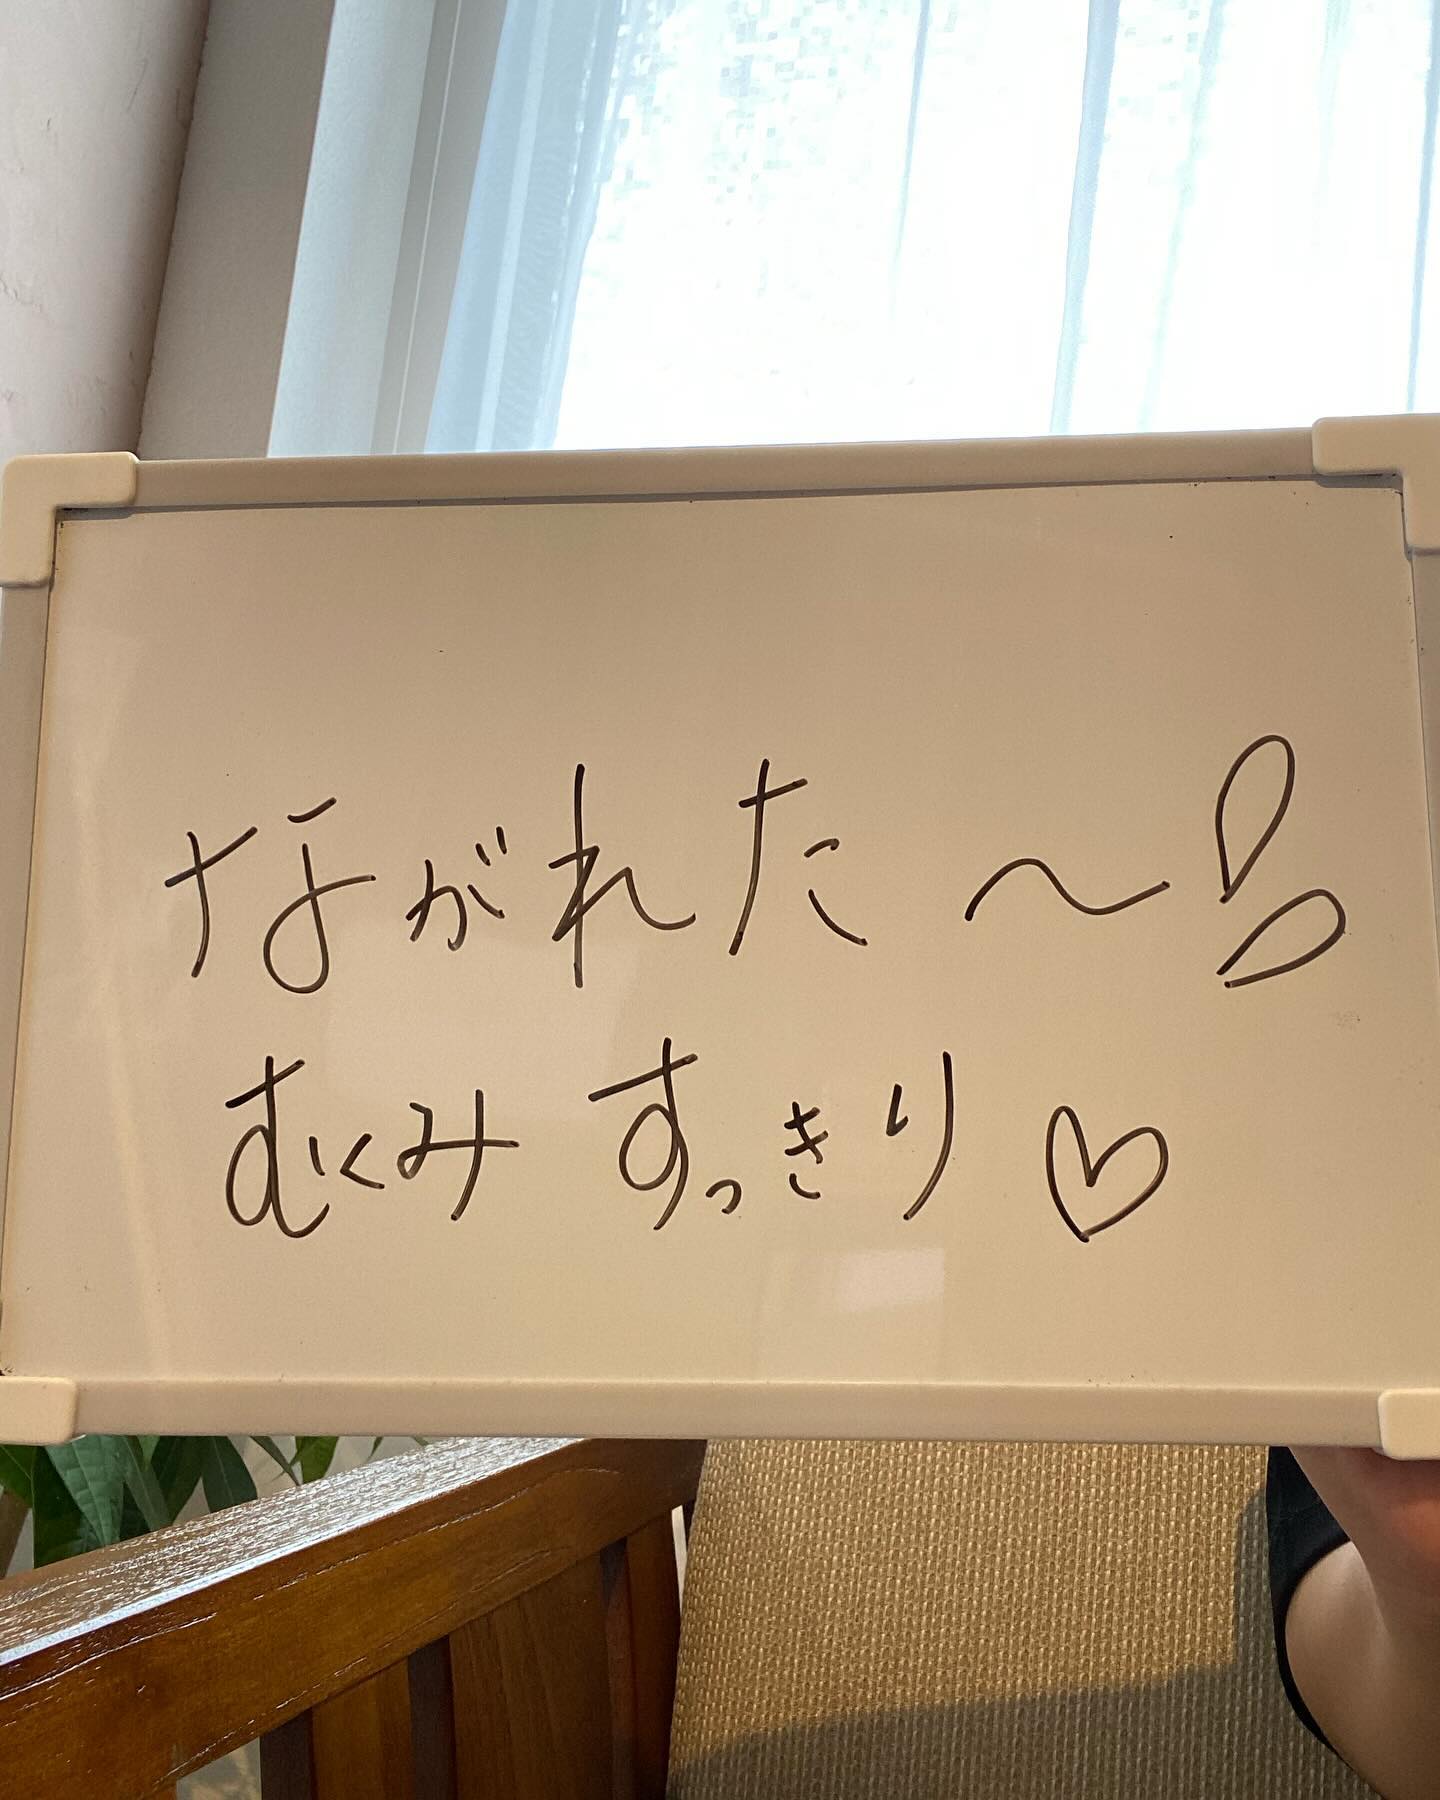 ながれた〜
むくみ すっきり♡